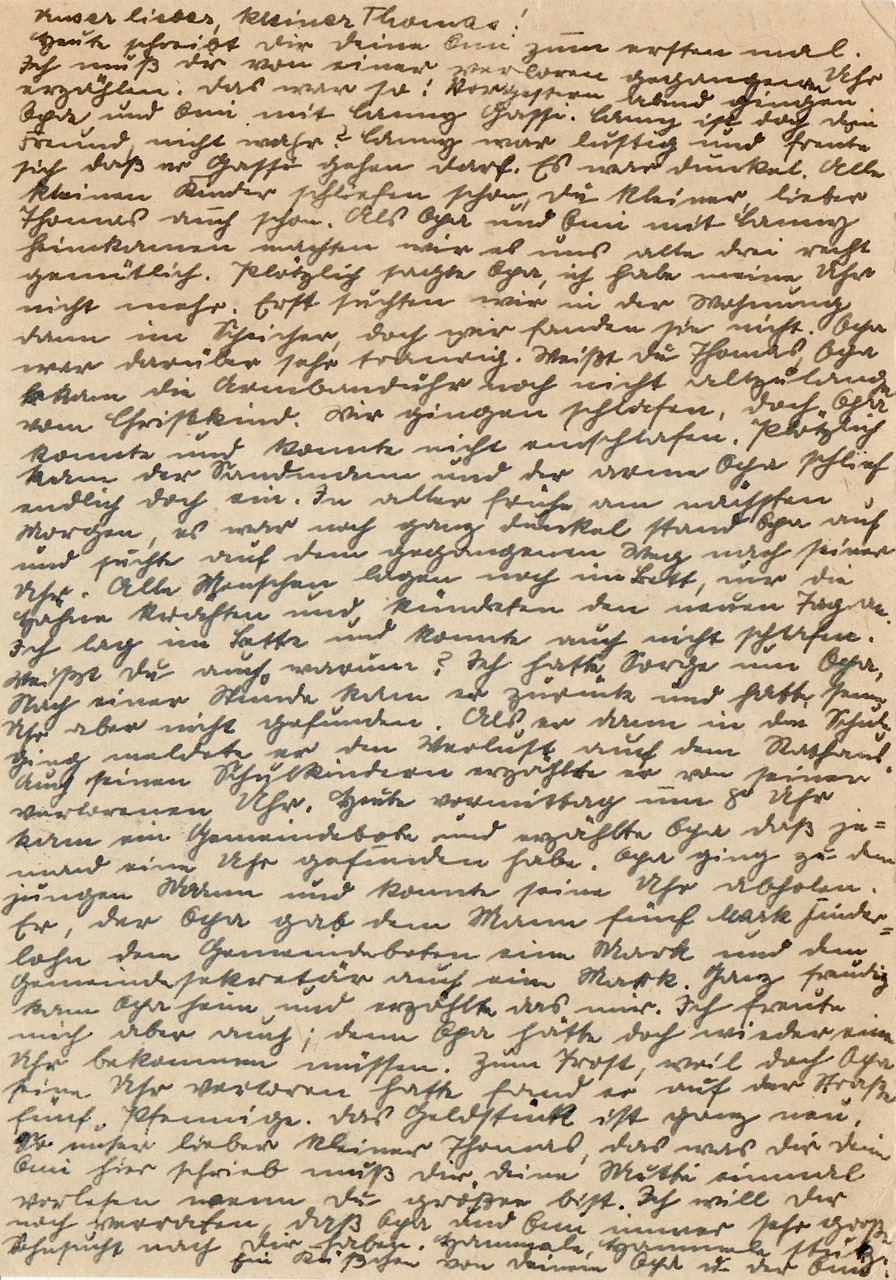 Unser lieber, kleiner Thomas!
Heute schreibt dir deine Omi zum ersten mal.
Ich muß dir von einer verloren gegangenen Uhr
erzählen. Das war so! Vorgestern abend gingen
Opa und Omi mit Lanny Gassi. Lanny ist doch dein
Freund, nicht wahr? Lanny war lustig und freute
sich daß er Gassi gehen darf. Es war dunkel. Alle
kleinen Kinder schliefen schon, du kleiner, lieber
Thomas auch schon. Als Opa und Omi mit Lanny
heimkamen machten wir es uns alle drei recht
gemütlich. Plötzlich sagte Opa, ich habe meine Uhr
nicht mehr. Erst suchten wir in der Wohnung
dann im Speicher, doch wir fanden sie nicht. Opa
war darüber sehr traurig. Weißt du Thomas, Opa
bekam die Armbanduhr noch nicht allzulange
vom Christkind. Wir gingen schlafen, doch Opa
konnte und konnte nicht einschlafen. Plötzlich
kam der Sandmann und der arme Opa schlief
endlich doch ein. In aller frühe am nächsten
Morgen, es war noch ganz dunkel stand Opa auf
und suchte auf dem gegangenen Weg nach seiner
Uhr. Alle Menschen lagen noch im Bett, nur die
Hähne krähten und kündeten den neuen Tag an.
Ich lag im Bette und konnte auch nicht schlafen.
Weißt du auch warum? Ich hatte Sorge um Opa,
Nach einer Stunde kam er zurück und hatte seine
Uhr aber nicht gefunden. Als er dann in die Schule
ging meldete er den Verlust auf dem Rathaus.
Auch seinen Schulkindern erzählte er von seiner
verlorenen Uhr. Heute vormittag um 8° Uhr
kam ein Gemeindebote und erzählte Opa daß je=
mand eine Uhr gefunden habe. Opa ging zu dem
jungen Mann und konnte seine Uhr abholen.
Er, der Opa gab dem Mann fünf Mark Finder=
lohn dem Gemeindeboten eine Mark und dem
Gemeindesekretär auch eine Mark. Ganz freudig
kam Opa heim und erzählte das mir. Ich freute
mich aber auch; denn Opa hätte doch wieder eine
Uhr bekommen müssen. Zum Trost, weil doch Opa
seine Uhr verloren hatte fand er auf der Straße
fünf Pfennige. Das Geldstück ist ganz neu.
So unser lieber kleiner Thomas, das was dir deine
Omi hier schrieb muß dir deine Mutti einmal
vorlesen wenn du größer bist. Ich will dir
noch verraten, daß Opa und Omi immer sehr große
Sehnsucht nach dir haben. Hammele, Hammele
Ein Küßchen von deinem Opa u. der Omi.